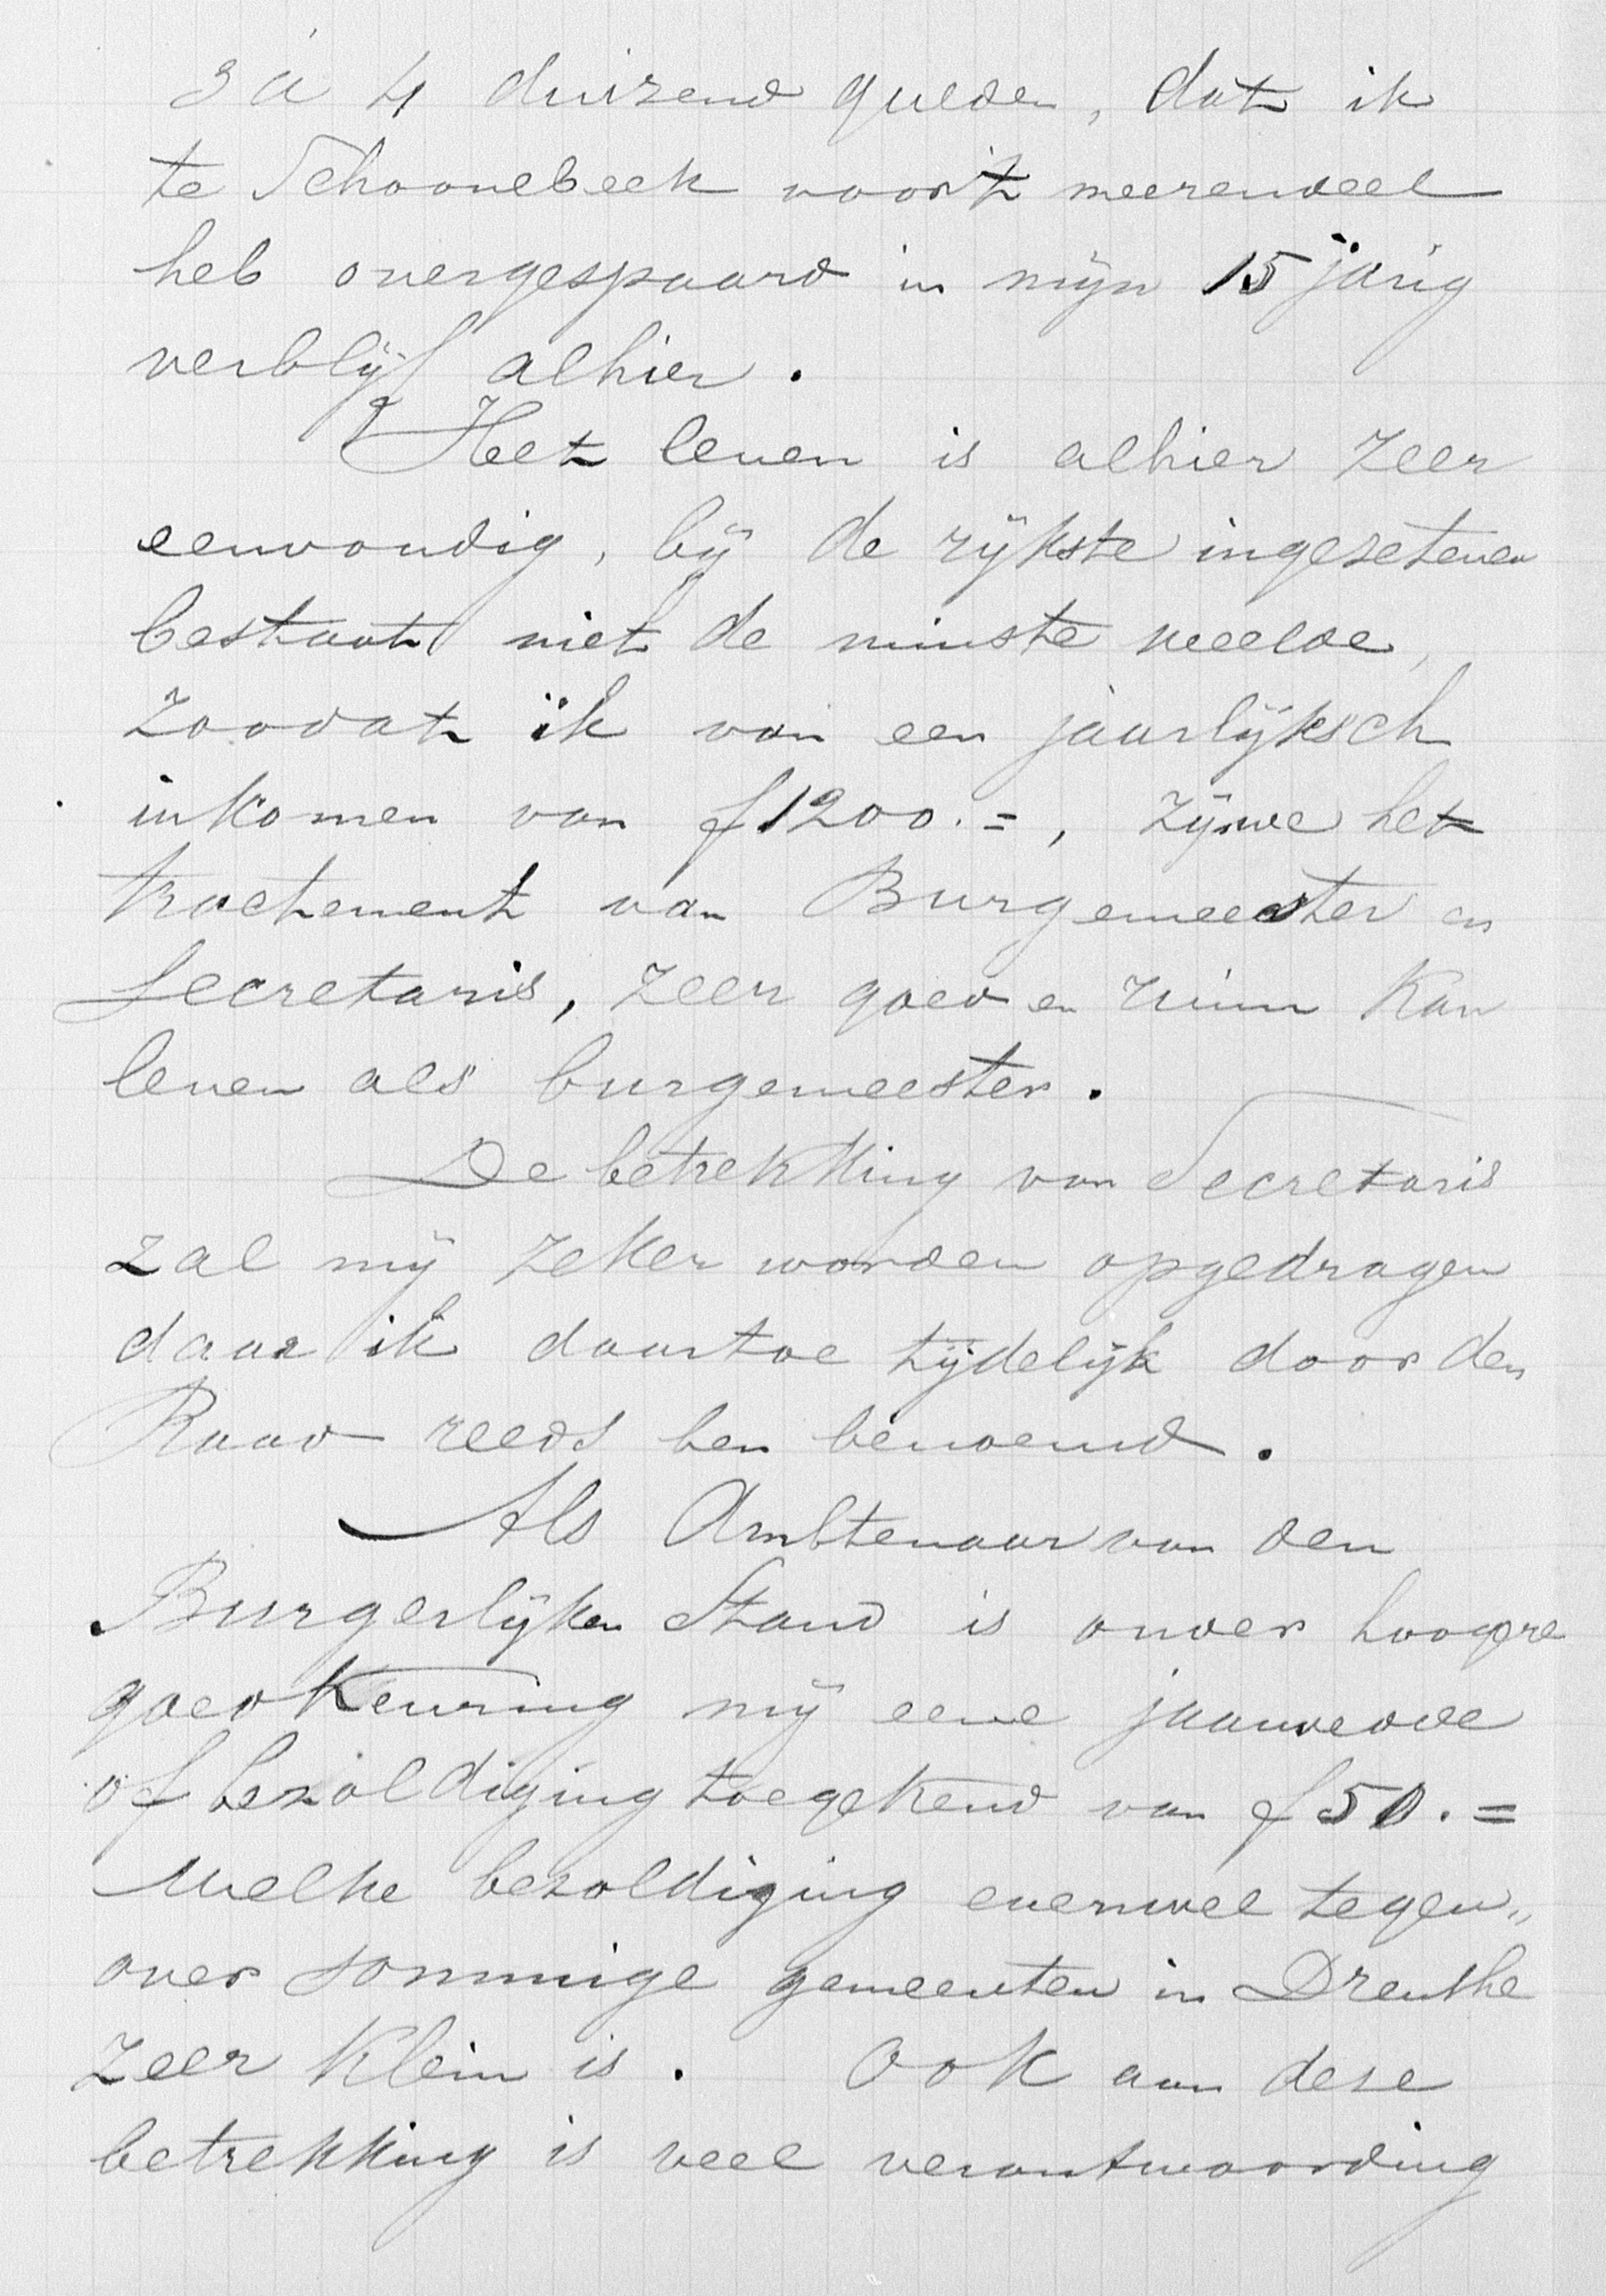 3 á 4 duizend gulden, dat ik
te Schoonebeek voor 't meerendeel
heb overgespaard in mijn 15 jarig
verblijf alhier.
Het leven is alhier zeer
eenvoudig, bij de rijkste ingezetenen
bestaat niet de minste weelde,
zoodat ik van een jaarlijksch
inkomen van f 1200.=, zijnde het
tractement van Burgemeester en
Secretaris, zeer goed en ruim kan
leven als burgemeester.
De betrekking van Secretaris
zal mij zeker worden opgedragen
daar ik daartoe tijdelijk door den
Raad reeds ben benoemd.
Als Ambtenaar van den
Burgerlijken Stand is onder hoogere
goedkeuring mij eene jaarwedde
of bezoldiging toegekend van f 50.=
welke bezoldiging evenwel tegen„
over sommige gemeenten in Drenthe
zeer klein is. Ook aan deze
betrekking is veel verantwoording